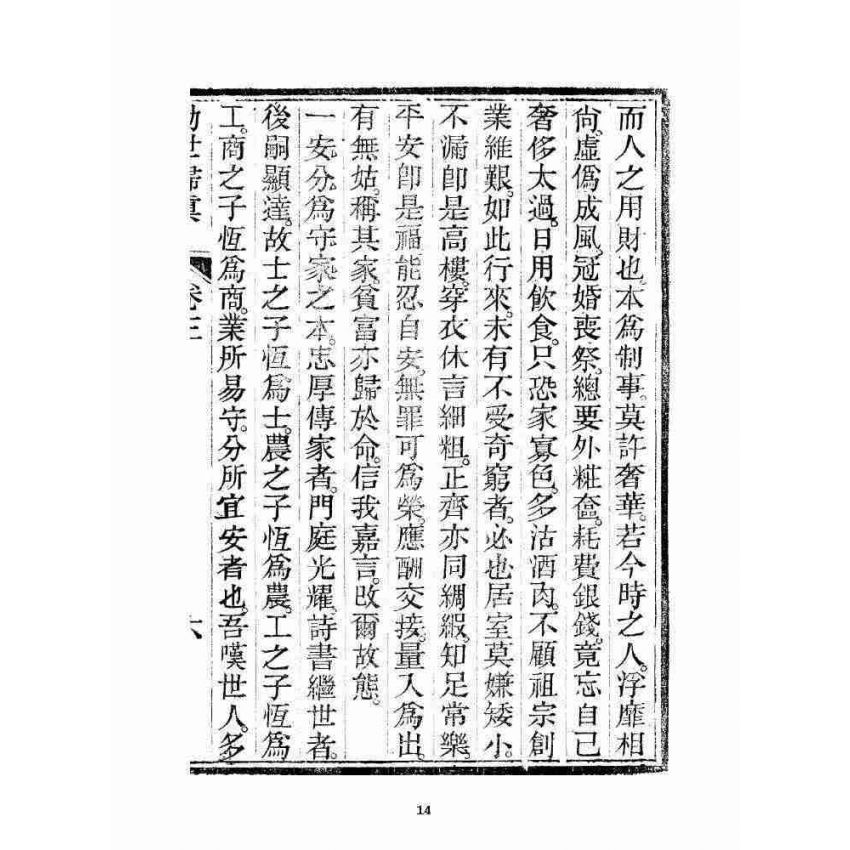 而人之用財也。本爲制事。莫許奢華。若今時之人。浮靡相
尙。虛僞成風。冠婚喪祭。總要外糚奩。耗費銀錢。竟忘自己
奢侈太過。日用飮食。只恐家寡色。多沽酒肉。不顧祖宗創
業維艱。如此行來。未有不受奇窮者。必也居室莫嫌矮小。
不漏卽是高樓。穿衣休言細粗。正齊亦同綢緞。知足常樂。
平安卽是福。能忍自安。無罪可爲榮。應酬交接。量入爲出。
有無姑。稱其家。貧富亦歸於命。信我嘉言。改爾故態。
一安分爲守家之本。忠厚傳家者。門庭光耀。詩書繼世者。
後嗣顯達。故士之子恆爲士。農之子恆爲農。工之子恆爲
工。商之子恆爲商。業所易守。分所宜安者也。吾嘆世人。多
卷三
六
14